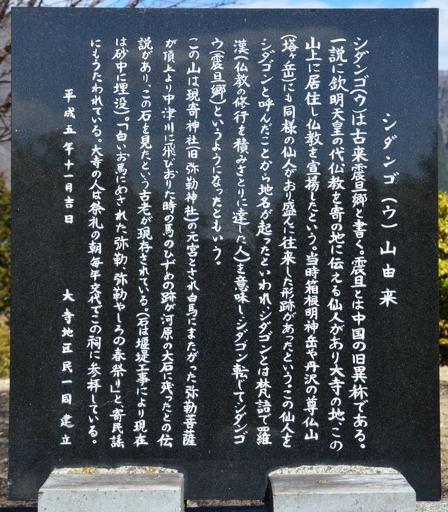 シダンゴ(ウ)山由来
シダンゴ(ウ)は古来震旦郷と書く。震旦とは中国の旧異称である。
一説に欽明天皇の代仏教を寄の地に伝える仙人があり大寺の地、この
山上に居住し仏教を宣揚したという。当時箱根明神岳や丹沢の尊仏山
(塔ノ岳)にも同様の仙人がおり盛んに往来した形跡があったという。この仙人を
シダゴンと呼んだことから地名が起ったといわれ、シダゴンとは梵語で羅
漢(仏教の修行を積みさとりに達した人)を意味し、シダゴン転じてシダンゴ
ウ(震旦郷)というようになったともいう。
この山は現寄神社(旧弥勒神社)の元宮とされ白馬にまたがった弥勒菩薩
が頂上より中津川に飛びおりた時の馬のひずめの跡が河原の大石に残ったとの伝
説があり、この石を見たという古老が現存されている。(石は堰堤工事により現在
は砂中に埋没)。「白いお馬にめされた弥勒、弥勒やしろの春祭り」と、寄民謡
にもうたわれている。大寺の人は祭礼の朝毎年交代でこの祠に参拝している。
平成五年十一月吉日　大寺地区民一同建立